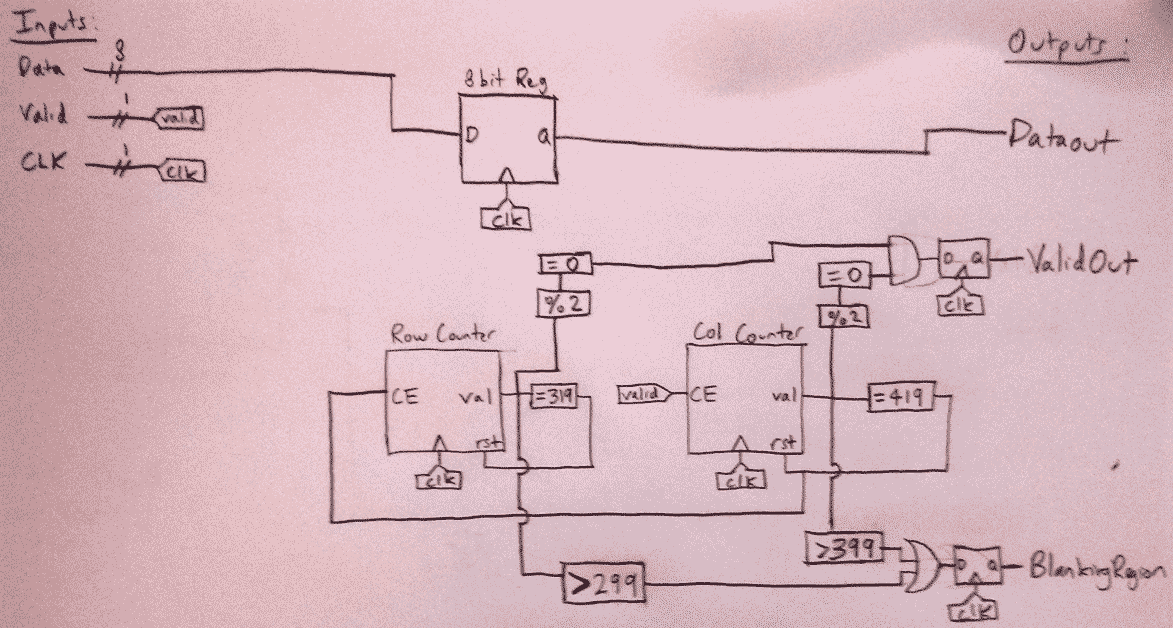 Inputs:
Data 8
Valid 1 valid
CLK 1 clk
8bit Reg
D Q
clk
Outputs:
Dataout
= 0
%2
= 0
%2
D Q
clk
ValidOut
Row Counter
CE val
rst
clk
=319
Col Counter
valid
CE val
rst
clk
=419
>299
>399
D Q
clk
BlankingRegion